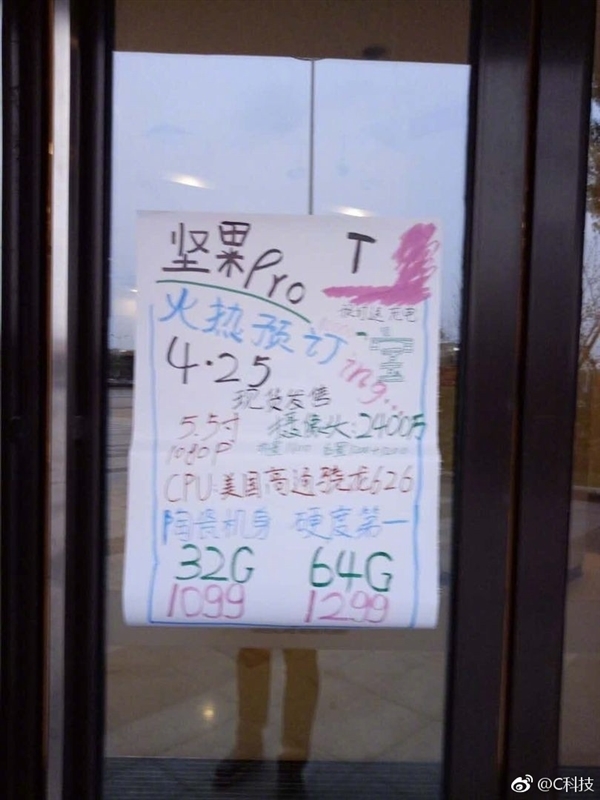 坚果Pro T
预订送 充电
火热预订 ing...
宝
4·25
现货发售
5.5寸 摄像头:2400万
1080P
CPU:美国高通骁龙626
陶瓷机身 硬度第一
32G 64G
1099 1299
@C科技